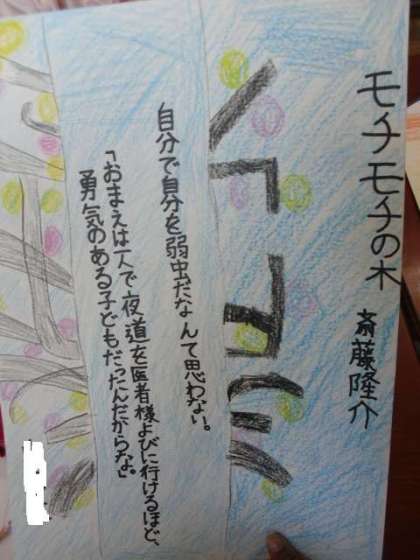 モチモチの木
斎藤隆介
自分で自分を弱虫だなんて思わない。
「おまえは一人で夜道を医者様よびに行けるほど、
勇気のある子どもだったんだからな。」